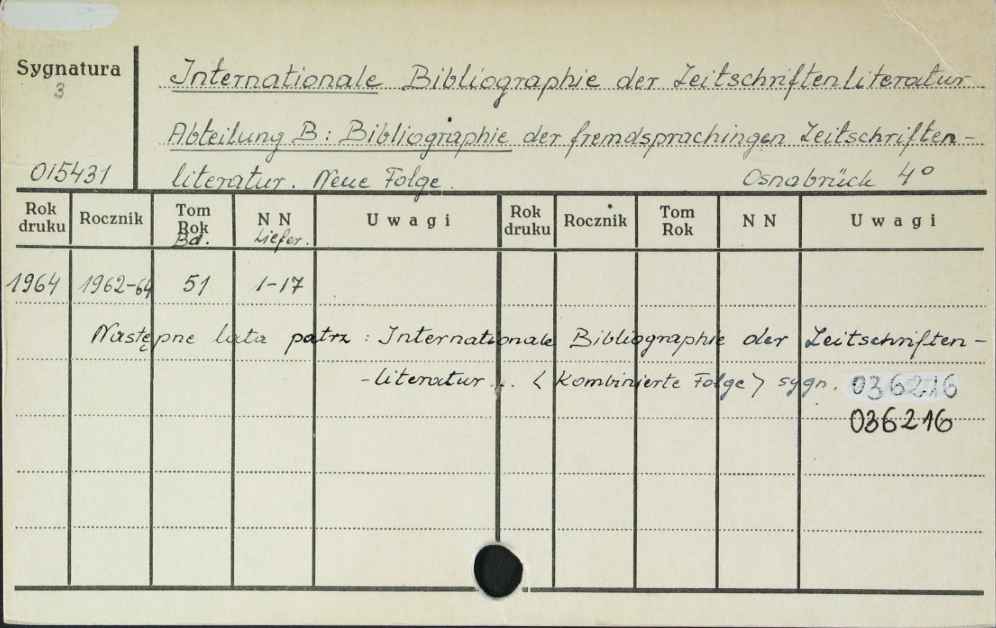 Sygnatura
3
015431
Internationale Bibliographie der Zeitschriftenliteratur
Abteilung B: Bibliographie der fremdsprachingen Zeitschriften-
literatur. Neue Folge. Osnabrück 4°
Rok druku Rocznik Tom Rok Bd. NN Liefer. Uwagi Rok druku Rocznik Tom Rok NN Uwagi
1964 1962-64 51 1-17
Następne lata patrz: Internationale Bibliographie der Zeitschriften-
-literatur... < Kombinierte Folge > sygn. 036216
036216